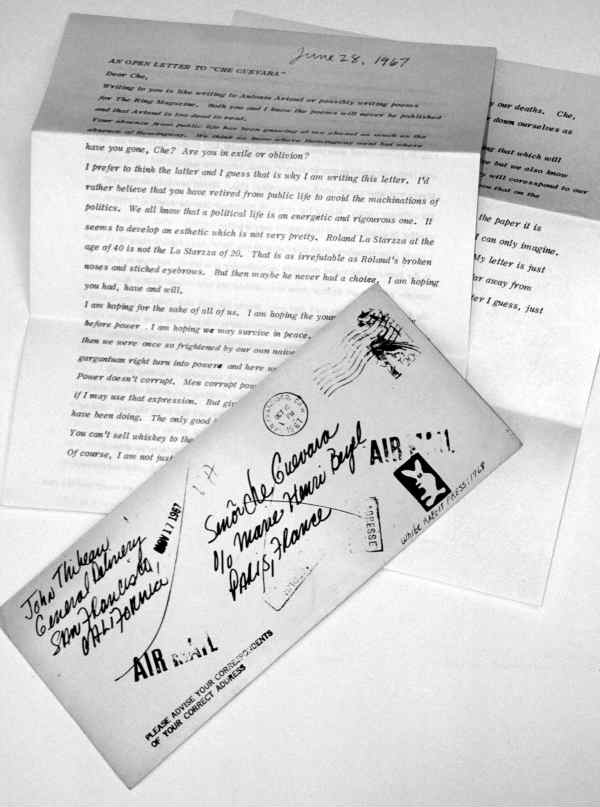 June 28, 1967
AN OPEN LETTER TO "CHE GUEVARA"
Dear Che,
Writing to you is like writing to Antonin Artaud or possibly writing poems
for The Ring Magazine. Both you and I know the poems will never be published
and that Artaud is too dead to read.
Your absence from public life has been gnawing at me almost as much as the
absence of Hemingway. We
have you gone, Che? Are you in exile or oblivion?
I prefer to think the latter and I guess that is why I am writing this letter. I'd
rather believe that you have retired from public life to avoid the machinations of
politics. We all know that a political life is an energetic and rigourous one. It
seems to develop an esthetic which is not very pretty. Roland La Starzza at the
age of 40 is not the La Starzza of 20. That is as irrefutable as Roland's broken
noses and stiched eyebrows. But then maybe he never had a choice, I am hoping
you had, have and will.
I am hoping for the sake of all of us. I am hoping the
before power . I am hoping we may survive in peace.
then we were once so frightened by our own
gargantuan right turn into powers and here
Power doesn't corrupt. Men corrupt
if I may use that expression. But
have been doing. The only good
You can't sell whiskey to the
Of course, I am not just
y our deaths. Che,
down ourselves as
ng that which will
e but we also know
y will corespond to our
the paper it is
I can only imagine.
My letter is just
ar away from
er I guess, just
John Thibeau
General Delivery
San Francisco,
CALIFORNIA
NOV 17 1967
OCT
PM
1967
Señor Che Guevara
c/o Marie Henri Beyle
PARIS, France
AIR MAIL
AIR MAIL
WHITE RABBIT PRESS: 1968
PLEASE ADVISE YOUR CORRESPONDENTS
OF YOUR CORRECT ADDRESS